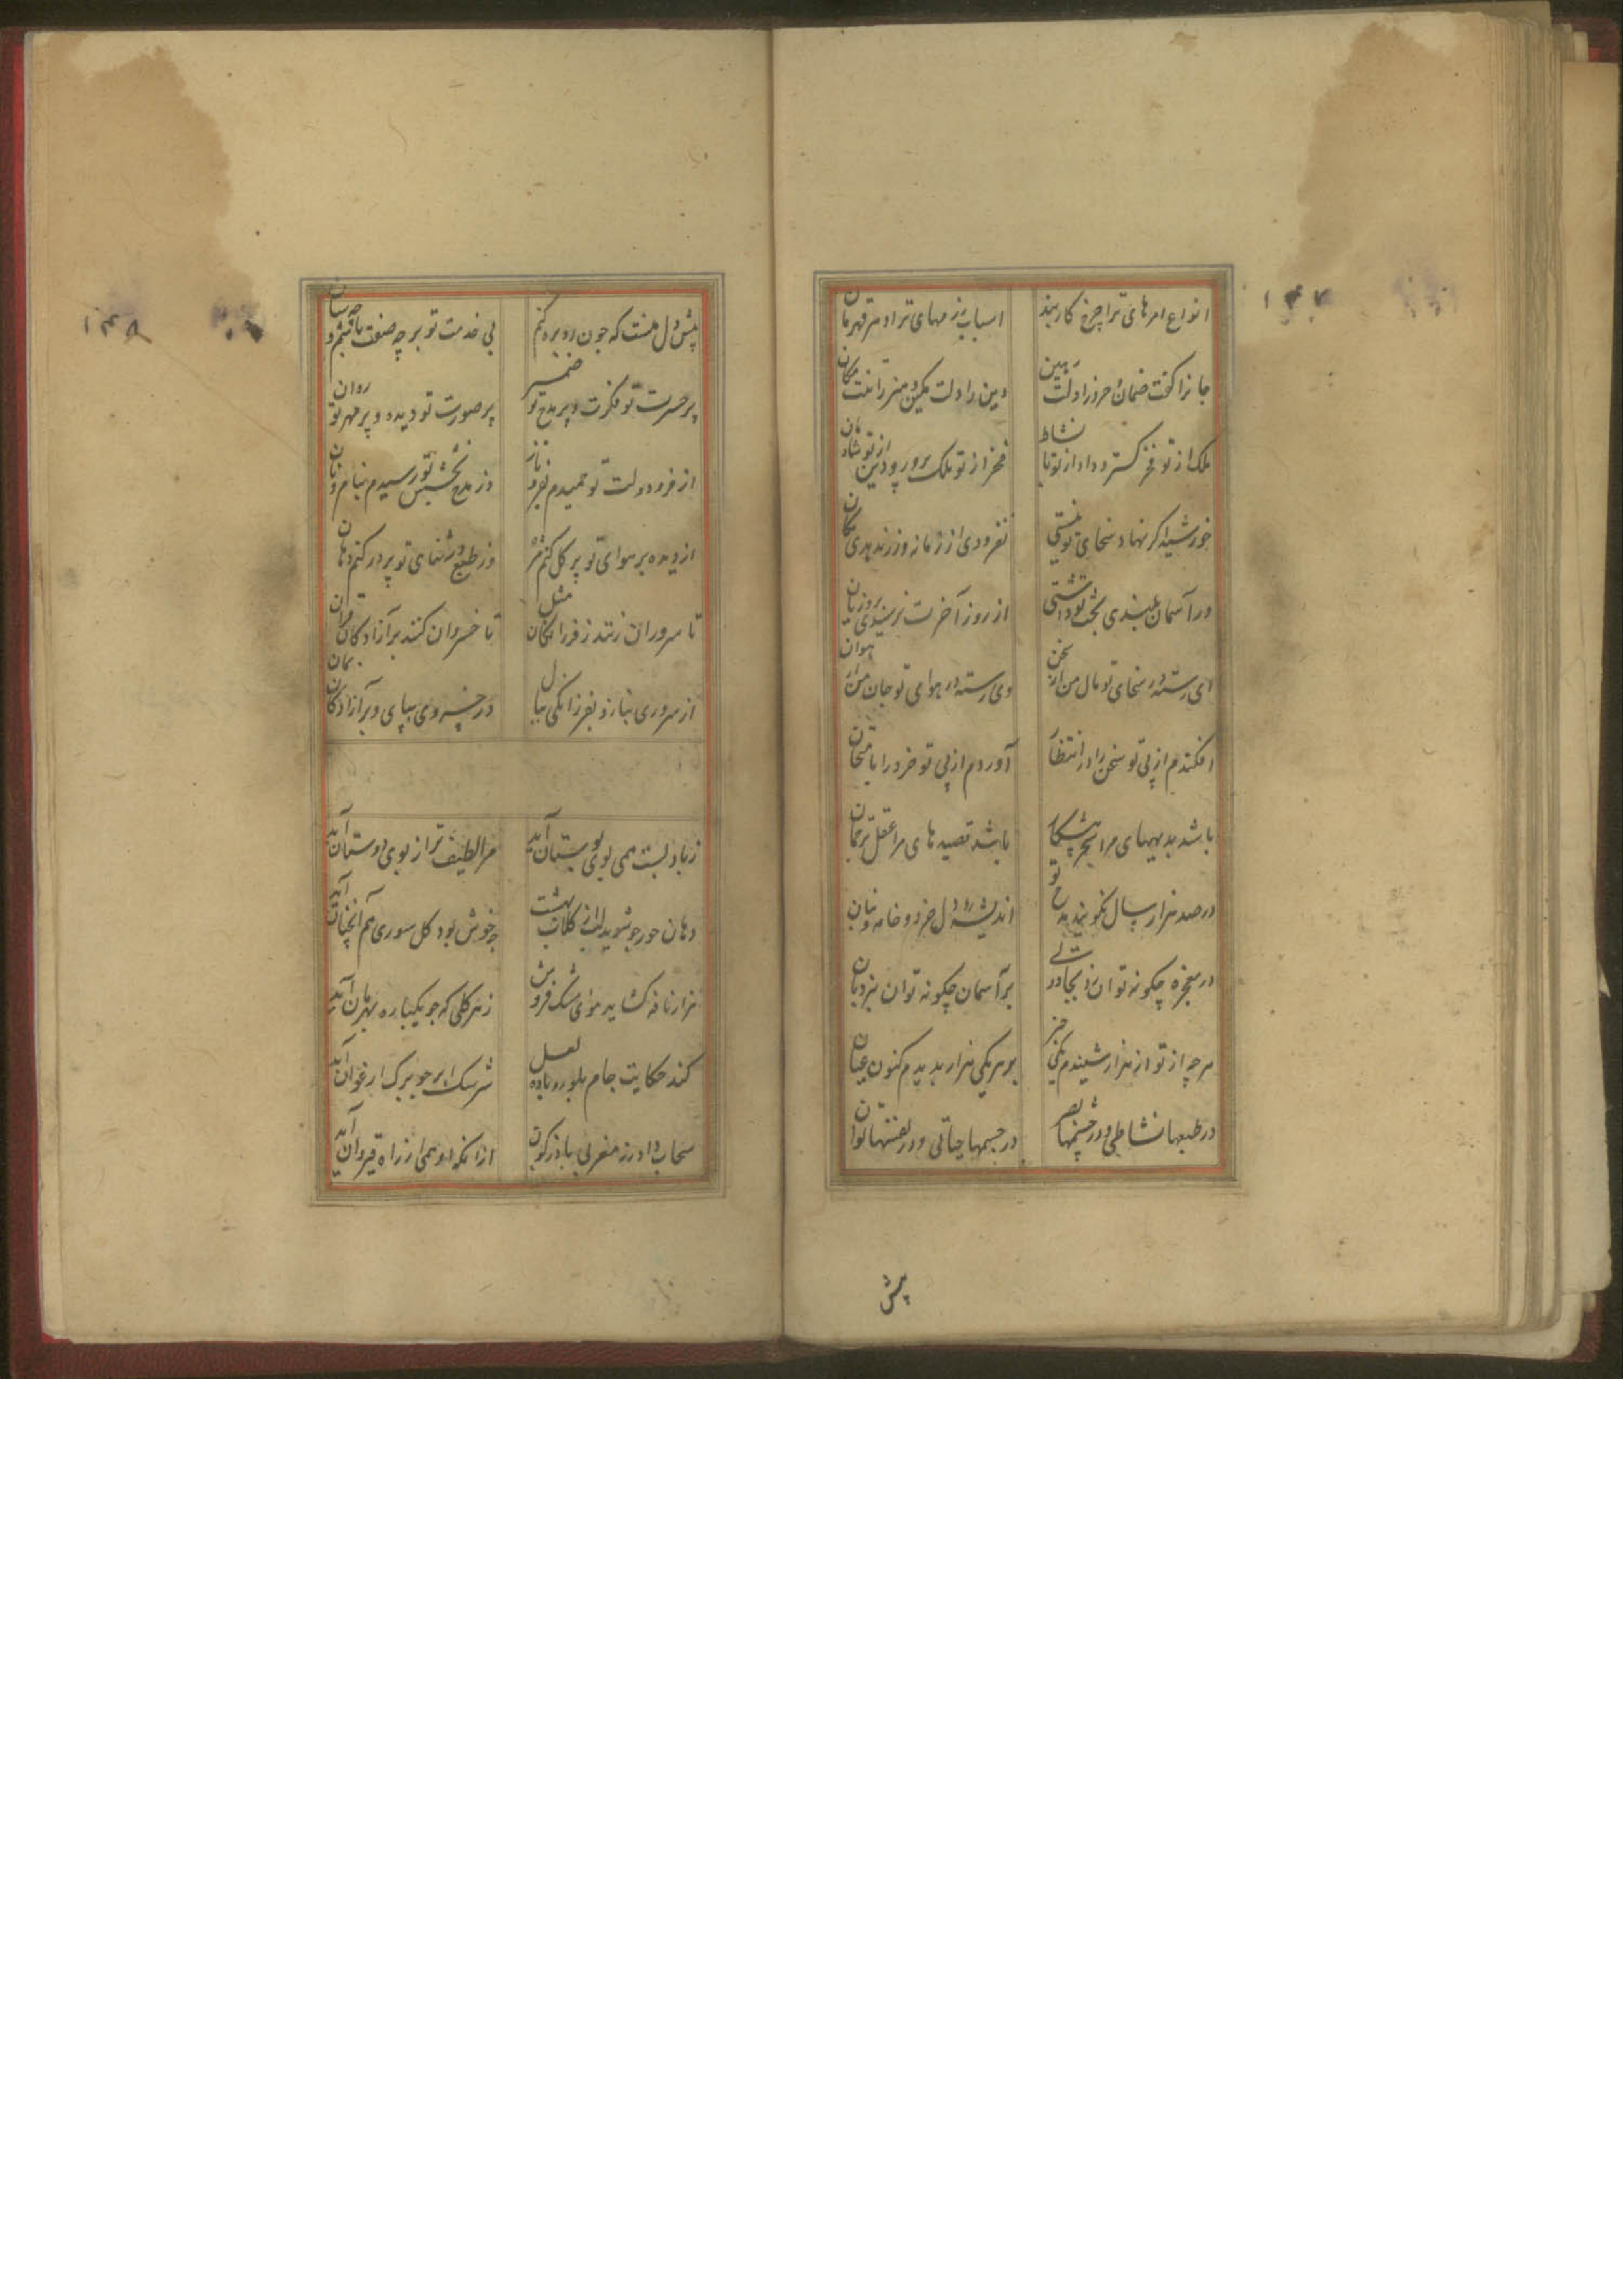 انواع امرهای ترا چرخ کاربند
اسباب بزمهای ترا دهر قهرمان
جانرا کفت ضمان و خرد را دلت رهین
دین را دلت مکین و هنر را تنت مکان
ملک از تو فخر گستر و داد از تو با نشاط
فخر از تو ملک پرور و دین از تو شادمان
خورشید اگر نهاد سخای تو داشتی
نفزودی از زمانه و زر ندیدی کان
ور آسمان بلندی بخت تو داشتی
از روز آخرت نرسیدی بروزیان
ای رسته در سخای تو مال من از محن
وی رسته در هوای تو جان من از هوان
افکندم از پی تو سخن را در انتظار
آوردم از پی تو خرد را بامتحان
باشد بدیهیهای مرا سحر پیشکار
باشد قصیدهای مرا عقل ترجمان
در صد هزار سال نگویند مدح تو
اندیشه و دل و خرد و خامه و بنان
در معجزه چگونه توان زد بجادوئی
بر آسمان چگونه توان شد بنردبان
هر چه از تو از هزار شنیدم یکی خبر
بر هر یکی هزار بدیدم کنون عیان
در طبعها نشاطی و در چشمها بصر
در جسمها حیاتی و در نفسها توان
پیش
پیش دل منست که چون ره بره کنم
بی خدمت تو بر چه صفت باشم و چه سان
پر حسرت تو فکرت و پر مدح تو ضمیر
پر صورت تو دیده و پر مهر تو روان
از فر و دولت تو چمیدم بفر و ناز
وز مدح و بخشش تو رسیدم بنام و نان
از دیده بر هوای تو پر گل کنم مژه
وز طبع در ثنای تو پر در کنم دهان
تا سروران زنند ز فرزانگان مثل
تا خسروان کنند بر آزادگان قران
از سروری بناز و بفرزانگی ببال
در خسروی بپای و بر آزادگان بمان
ز باد بست همی بوی بوستان آید
مرا لطیف تر از بوی دوستان آید
دهان حور چو شوید لب از گلاب بهشت
چه خوش بود گل سوری هم آنچنان آید
هزار نافه گشاید هوای مشک فروش
ز هر گلی که چو یکپاره بهرمان آید
کند حکایت جام بلور و باده لعل
سرشک ابر چو بر برگ ارغوان آید
سحاب دارد زر مغربی بآذرگون
از آنکه او همی از راه قیروان آید